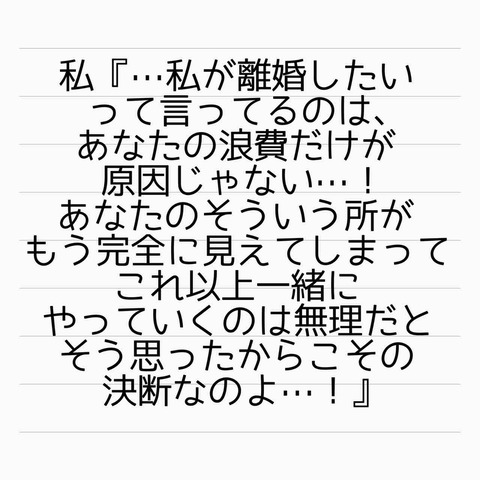 私『…私が離婚したい
って言ってるのは、
あなたの浪費だけが
原因じゃない…！
あなたのそういう所が
もう完全に見えてしまって
これ以上一緒に
やっていくのは無理だと
そう思ったからこその
決断なのよ…！』